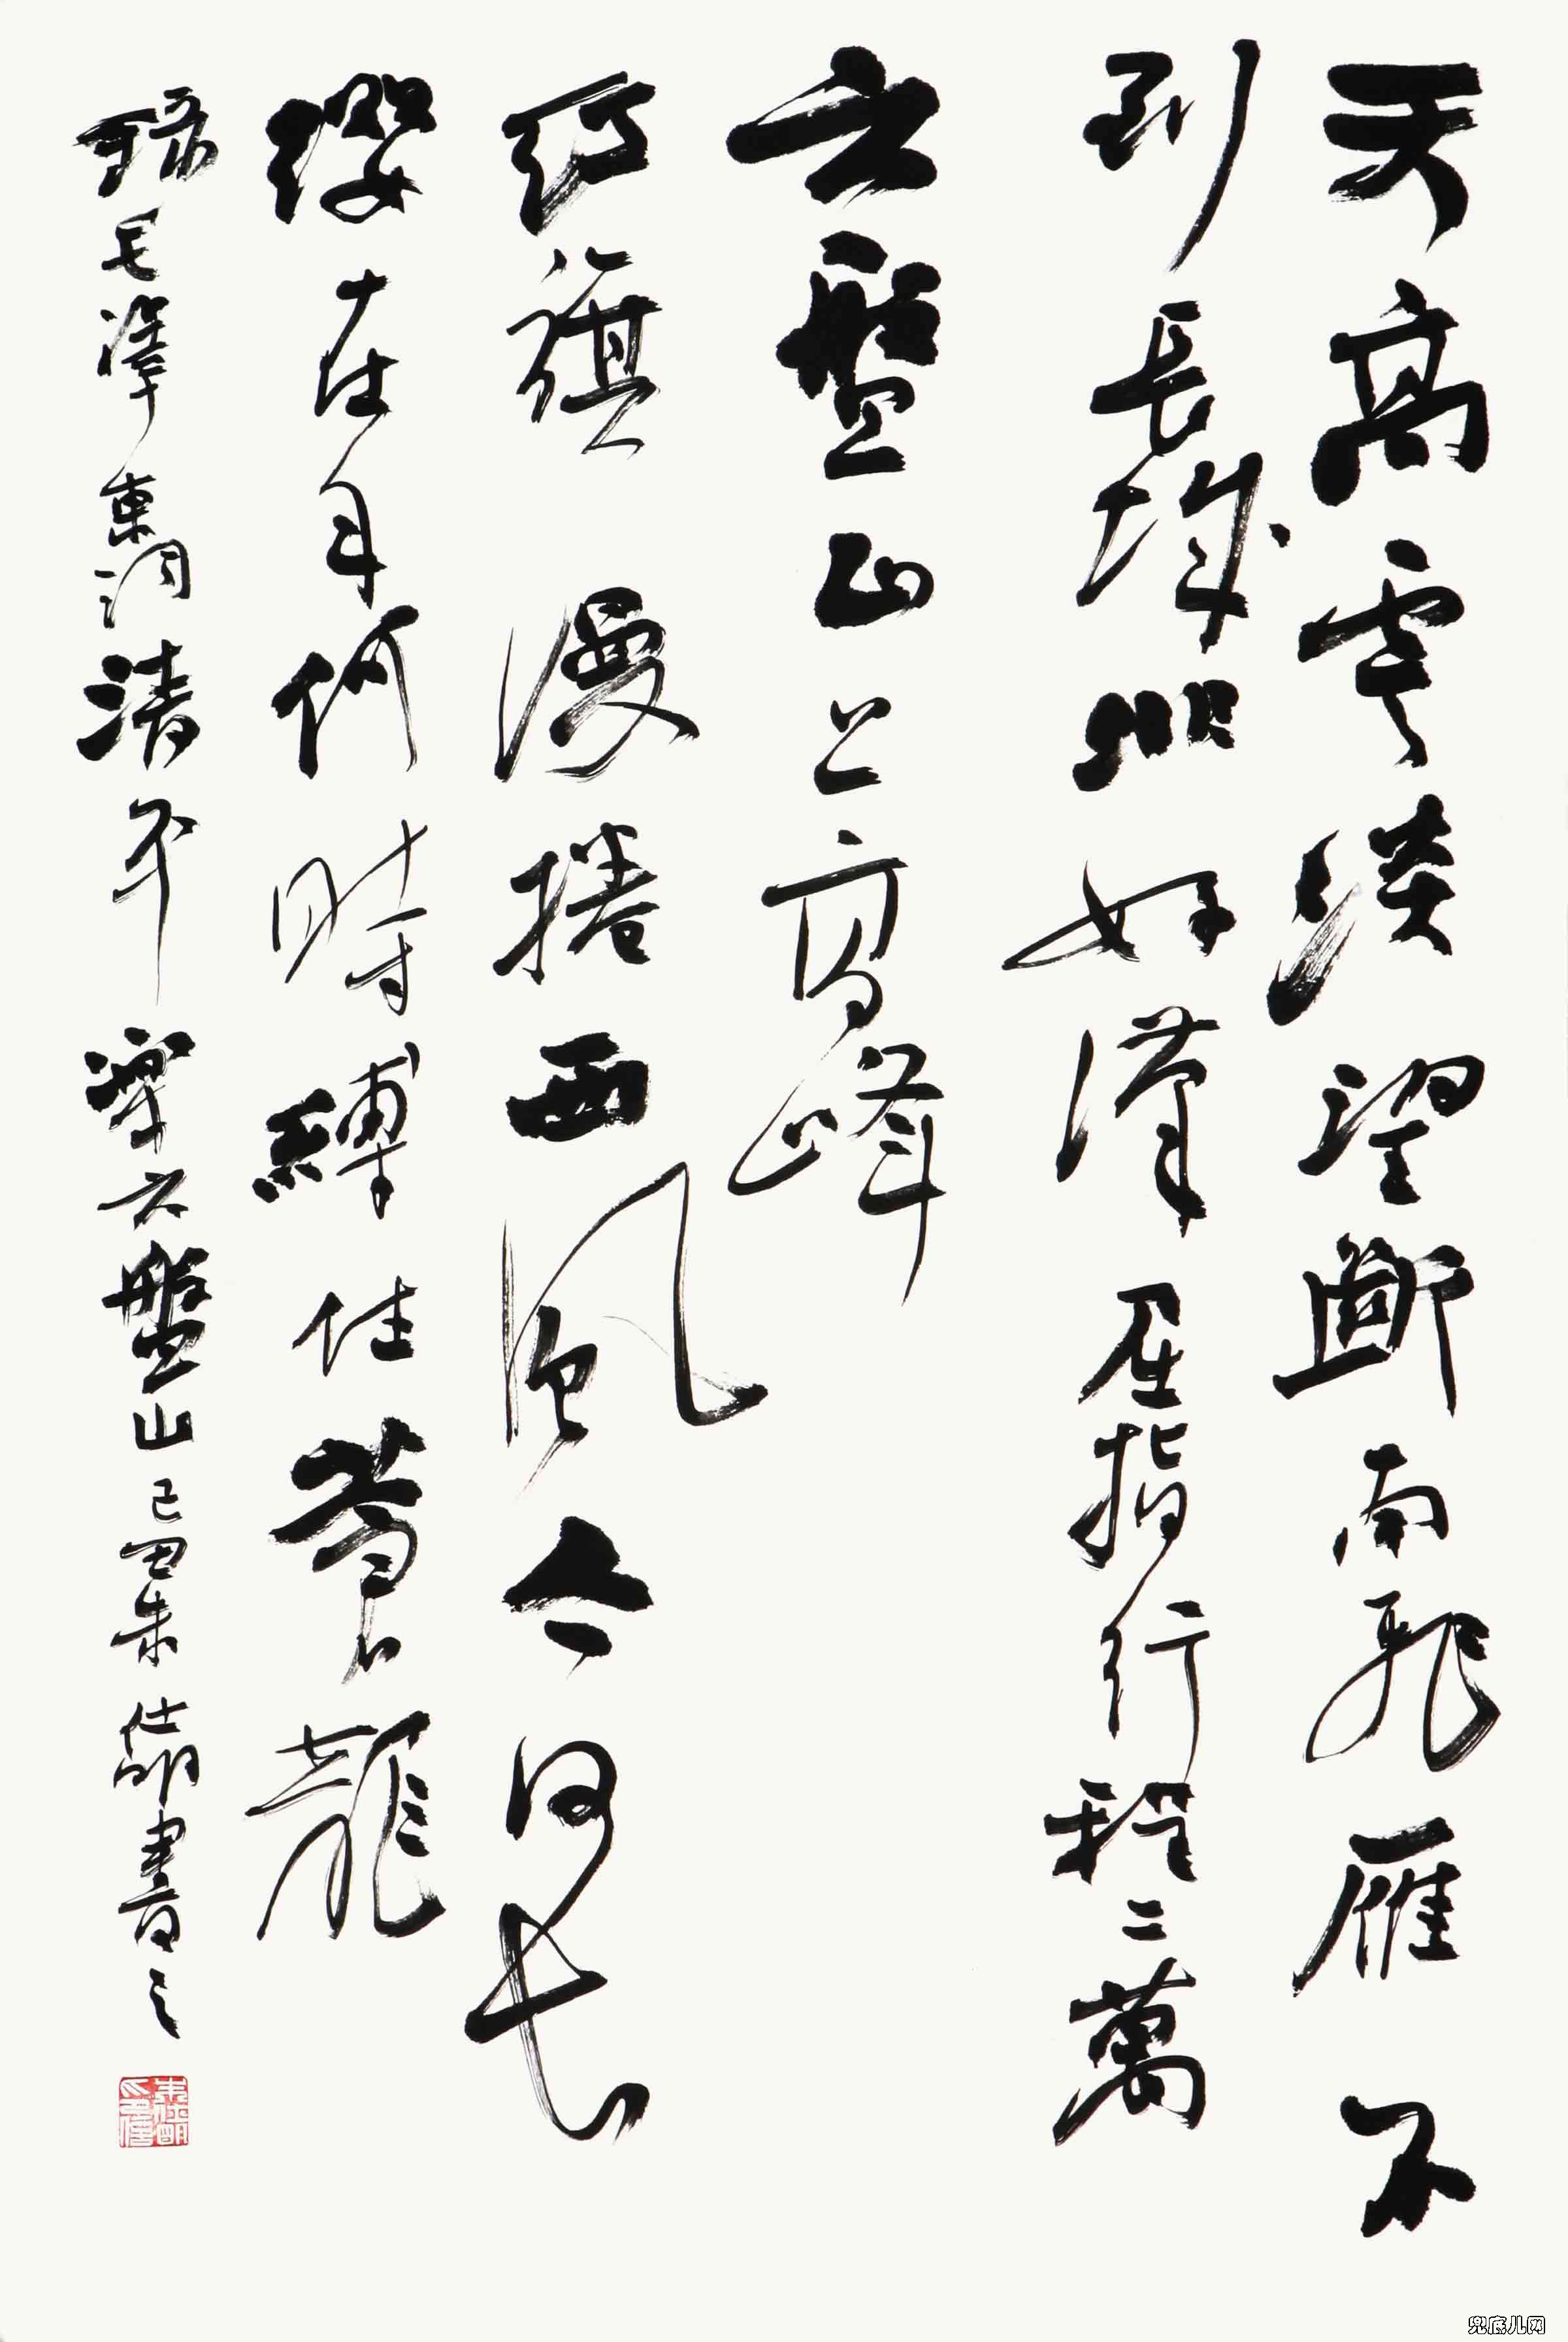 天高雲淡望斷南飛雁不
到長城非好漢屈指行程二萬
六盤山上高峰
紅旗漫捲西風今日長
纓在手何時縛住蒼龍
錄毛澤東詞清平樂六盤山己丑朱仕明書之
兜底儿网